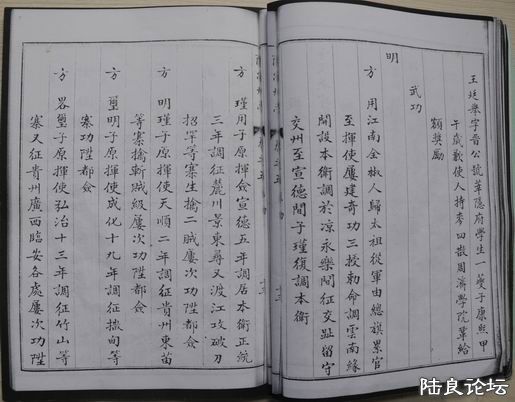 王廷舉字晋公號華隱府學生一夔子康熙甲
午歲歉使人持麥四散周濟學院給
額獎勵
明
武功
方用江南全椒人歸太祖從軍由總旗累官
至揮使屢建奇功三授勅命調雲南緣
開設本衛調於凉永樂間征交趾留守
交州至宣德間子瑾復調本衛
方瑾用子原揮僉宣德五年調居本衛正統
三年調征麓川景東尋又渡江攻破刀
招罕等寨生擒二賊屢次功陞都僉
方明瑾子原揮使天順二年調征貴州東苗
等寨擒斬賊級屢次功陞都僉
方璽明子原揮使成化十九年調征撒甸等
寨功陞都僉
方畧璽子原揮使弘治十三年調征竹山等
寨又征貴州廣西臨安各處屢次功陞
陆良论坛